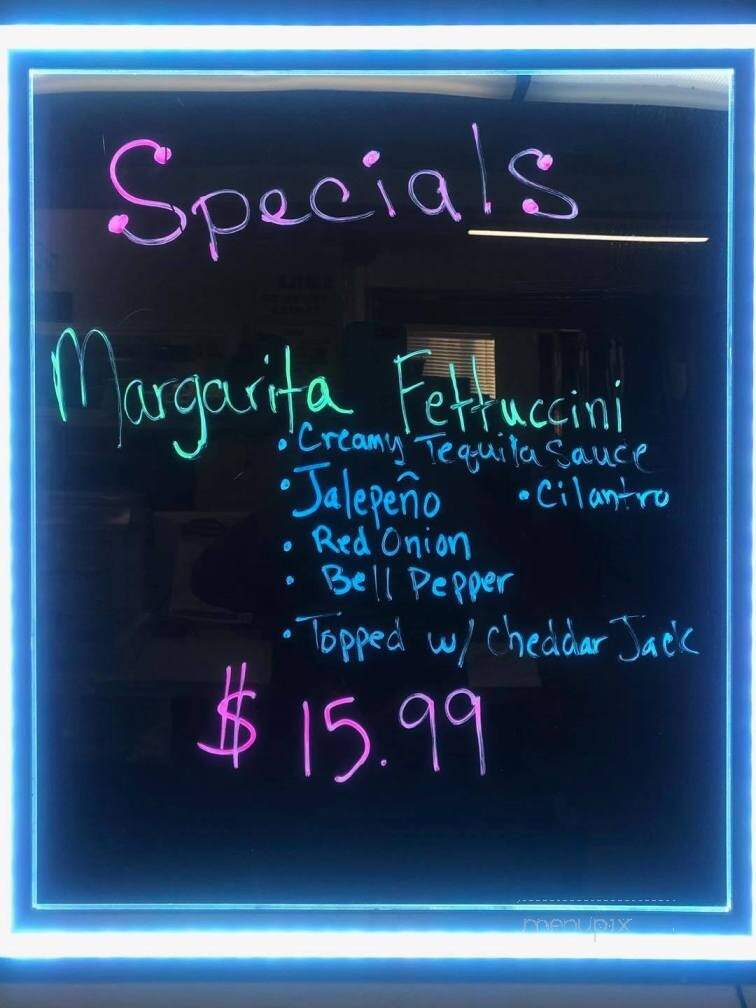 Specials
Margarita Fettuccini
• Creamy Tequila Sauce
• Jalepeño • Cilantro
• Red Onion
• Bell Pepper
• Topped w/ Cheddar Jack
$ 15.99
menupix